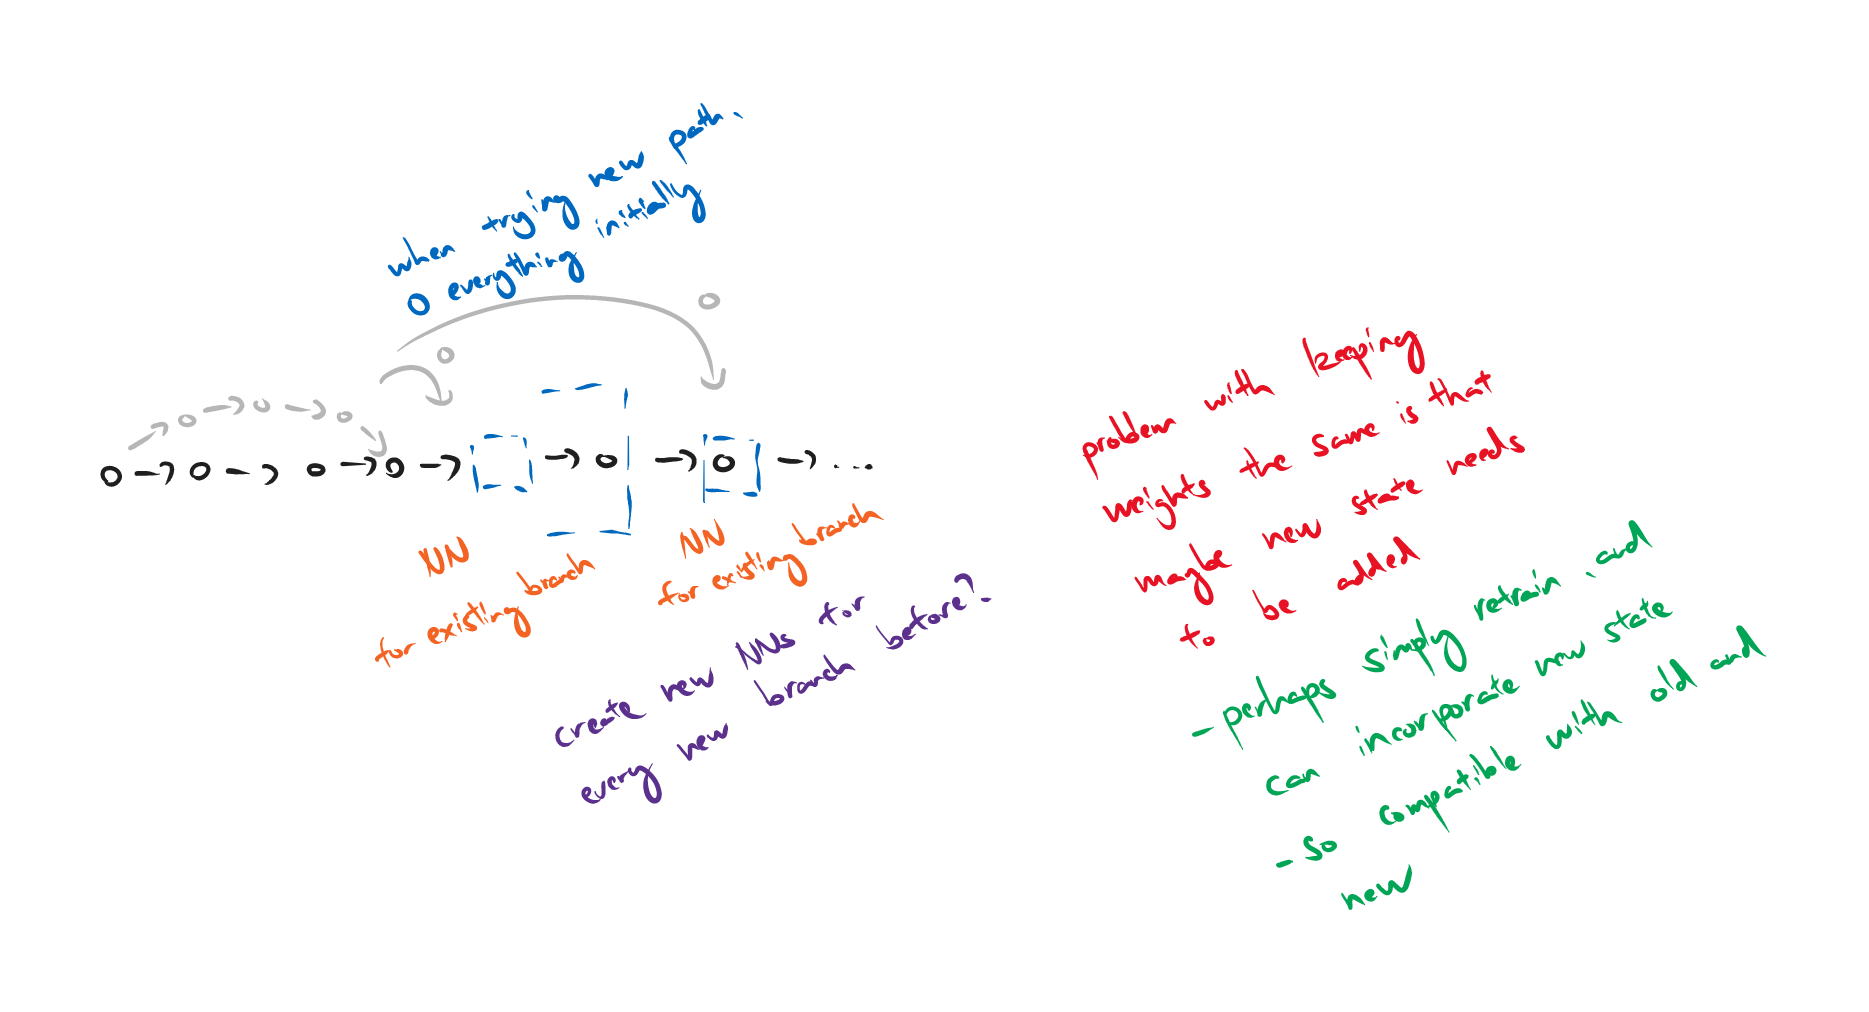 when trying new path.
0 everything initially
0
0
0 → 0 → 0 → 0 → → 0 → 0 → ...
NN
for existing branch
NN
for existing branch
create new NNs for
every new branch before?
problem with keeping
weights the same is that
maybe new state needs
to be added
- perhaps simply retrain, and
can incorporate new state
- so compatible with old and
new